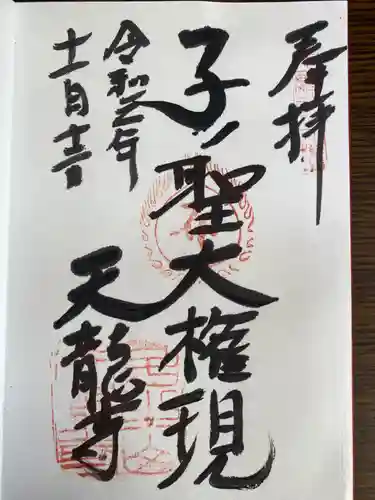 奉拝
子ノ聖大権現
令和二年
十一月十一日
天龍寺